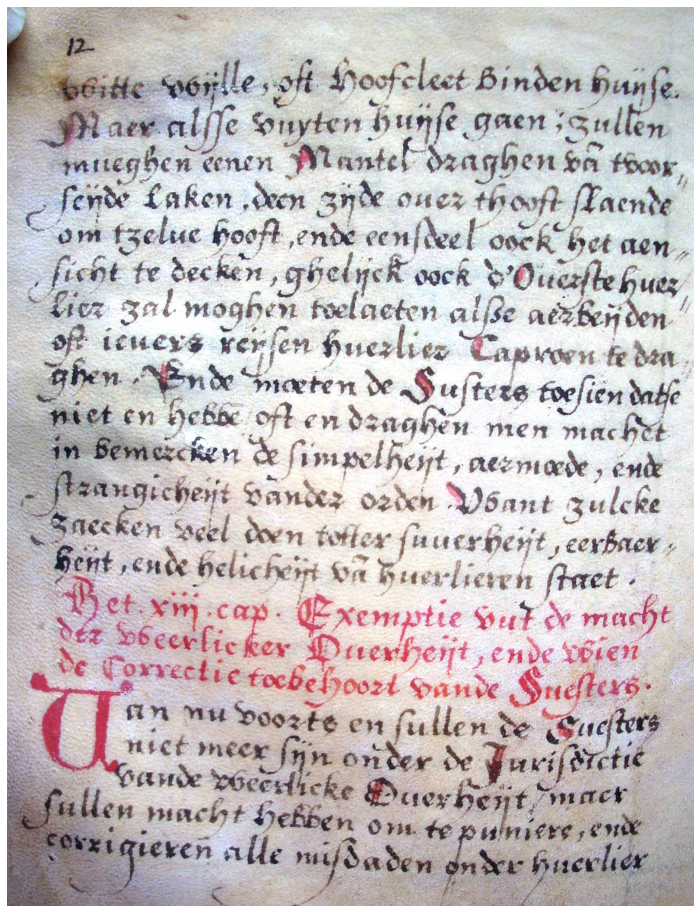 12
witte wijlle, oft hoofcleet binden huijse.
Maer alsse vuyten huijse gaen; zullen
mueghen eenen Mantel draghen vā tvoor„
seijde laken, deen zijde over thooft slaende
om tzelue hooft, ende eensdeel oock het aen„
sicht te decken, ghelijck oock d'Ouerste huer„
lier zal moghen toelaeten alsse aerbeijden
oft ievers reijsen huerlier Caproen te dra„
ghen. Ende moeten de Susters toesien datse
niet en hebbē oft en draghen men machet
in bemercken de simpelheijt, aermoede, ende
strangicheijt vander orden. Want zulcke
zaecken veel doen totter suuerheijt, eerbaer„
heijt, ende helicheijt vā huerlieren staet.
Het .xiij. cap. Exemptie vut de macht
der weerlicker Ouerheijt, ende wien
de Correctie toebehoort vande Suesters.
Van nu voorts en sullen de Suesters
niet meer sijn onder de Jurisdictie
vande weerlicke Ouerheijt, maer
sullen macht hebben om te puniere, ende
corrigieren alle misdaden onder huerlier